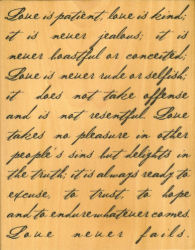 Love is patient, love is kind;
it is never jealous; it is
never boastful or conceited;
Love is never rude or selfish;
it does not take offense
and is not resentful. Love
takes no pleasure in other
people's sins but delights in
the truth; it is always ready to
excuse, to trust, to hope
and to endure whatever comes.
Love never fails.